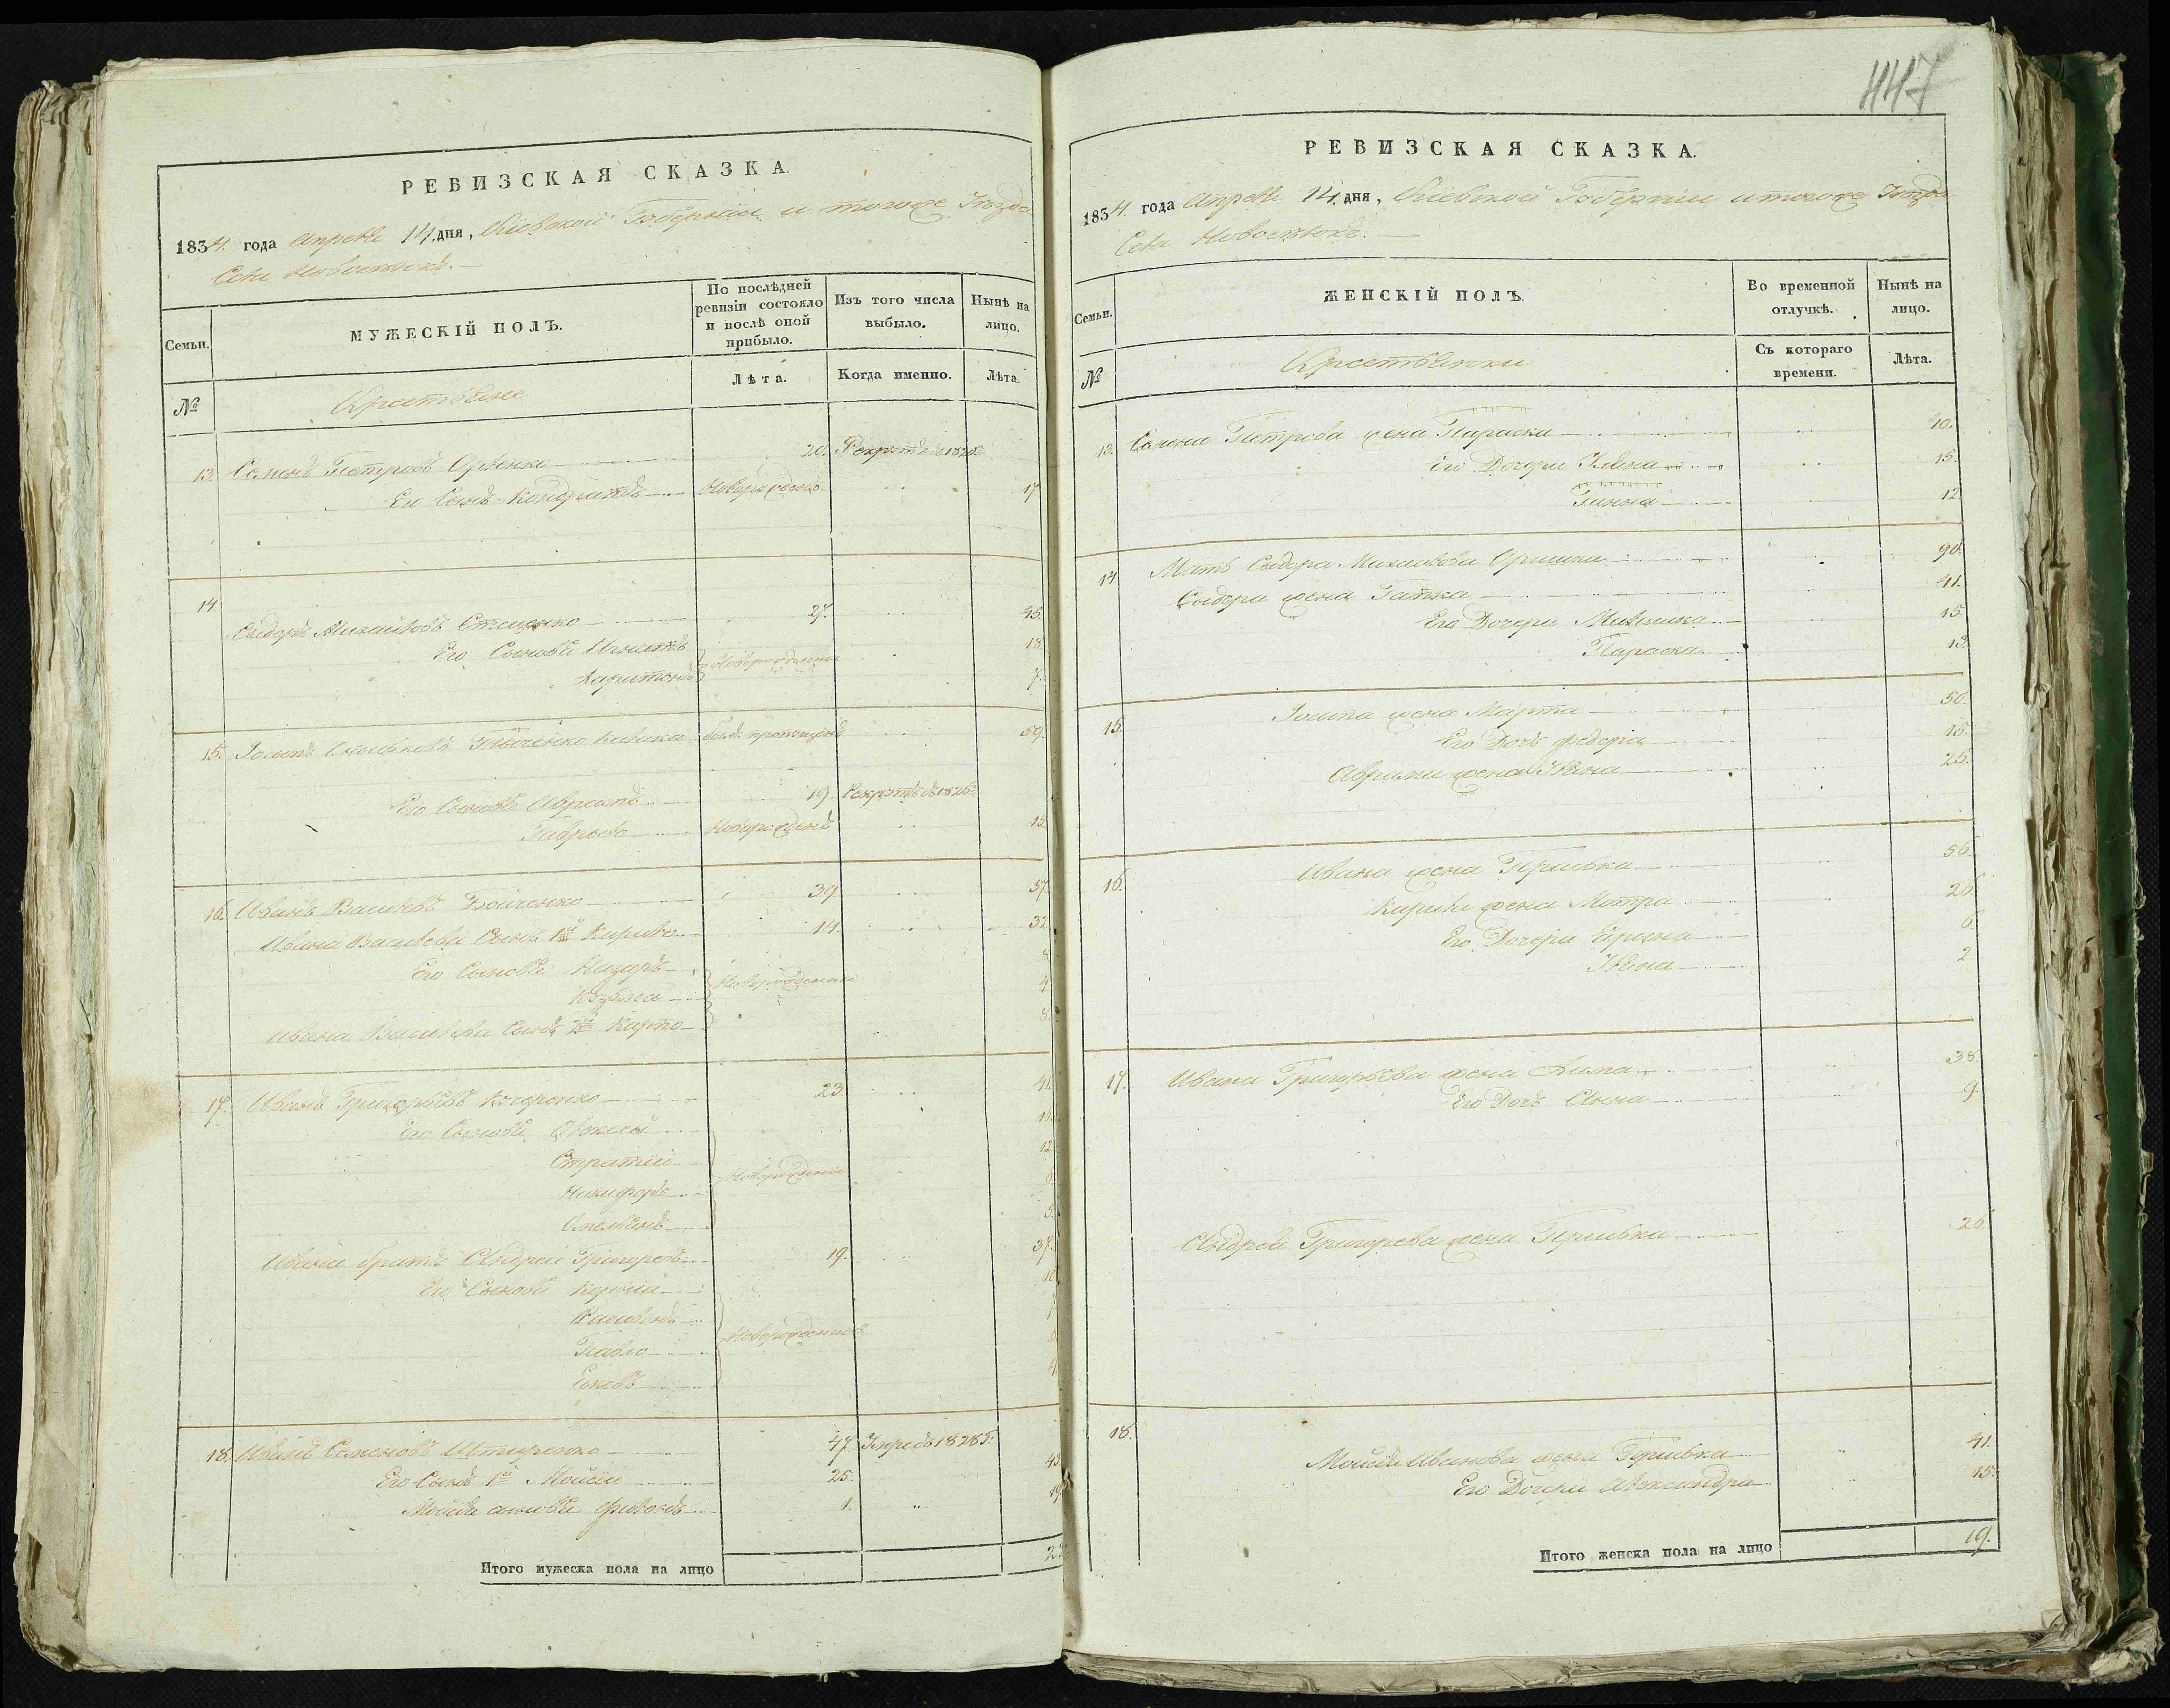 РЕВИЗСКАЯ СКАЗКА.
1834. года Апреля 14. дня, Кіевской Губерніи и тогоже Уезда
Села Новоселокъ.
Семьи.
МУЖЕСКІЙ ПОЛЪ.
По послѣдней ревизіи состояло и послѣ оной прибыло.
Изъ того числа выбыло.
Нынѣ на лицо.
№
Крестьяне
Лѣта.
Когда именно.
Лѣта.
13. Семенъ Петровъ 20. Рекрутъ въ 1820.
Его Сынъ Кондратъ Новорожденъ 17
14
Сыдоръ Михайловъ Стещенко 27. 45.
Его Сыновья Игнатъ 18.
Харитонъ Новорожденные 7.
15. Іосипъ былъ пропущенъ 59.
Его Сыновья 19. Рекрутъ въ 1826
Гаврыло Новорожденъ 15.
16. Иванъ Васильевъ Бойченко 39. 57
Ивана Васильева Сынъ 1й Кирило 14. 32
Его Сыновья Назаръ 8
Кузьма Новорожденные 4
Ивана Васильева Сынъ 2й Карпо 8.
17. Иванъ Григорьевъ Кучеренко 23. 41.
Его Сыновья
12
Никифоръ Новорожденные
Омельянъ 5.
Ивана братъ Андрей Григоревъ 19. 37.
Его Сыновья Корній 10
Павло Новорожденные
Яковъ 4
18. Иванъ Семеновъ 47. Умре въ 1828.
Его Сынъ 1й Мойсій 25. 43
Мойсія сыновья 1. 19
Итого мужеска пола на лицо 23
447
РЕВИЗСКАЯ СКАЗКА.
1834. года Апреля 14. дня, Кіевской Губерніи и тогоже Уезда
Села Новоселокъ.
Семьи.
ЖЕНСКІЙ ПОЛЪ.
Во временной отлучкѣ.
Нынѣ на лицо.
№
Крестьянки
Съ котораго времени.
Лѣта.
13. Семена Петрова жена Параска 40.
Его Дочери Уляна 15.
Ганна 12
14 Мать Сыдора Михайлова Оришка 90.
Сыдора жена Гапка 41.
Его Дочери 15.
Параска 13.
15. Іосипа жена Марта 50.
Его Дочь Федора 16.
жена Уляна 25.
16. Ивана жена 56.
Кирила жена Мотря 26.
Его Дочери 6
Уляна 2.
17. Ивана Григорьева жена 38.
Его Дочь Анна 9.
Андрея Григорева жена 26.
18.
Мойсія Иванова жена 41.
Его Дочери Александра 15.
Итого женска пола на лицо 19.